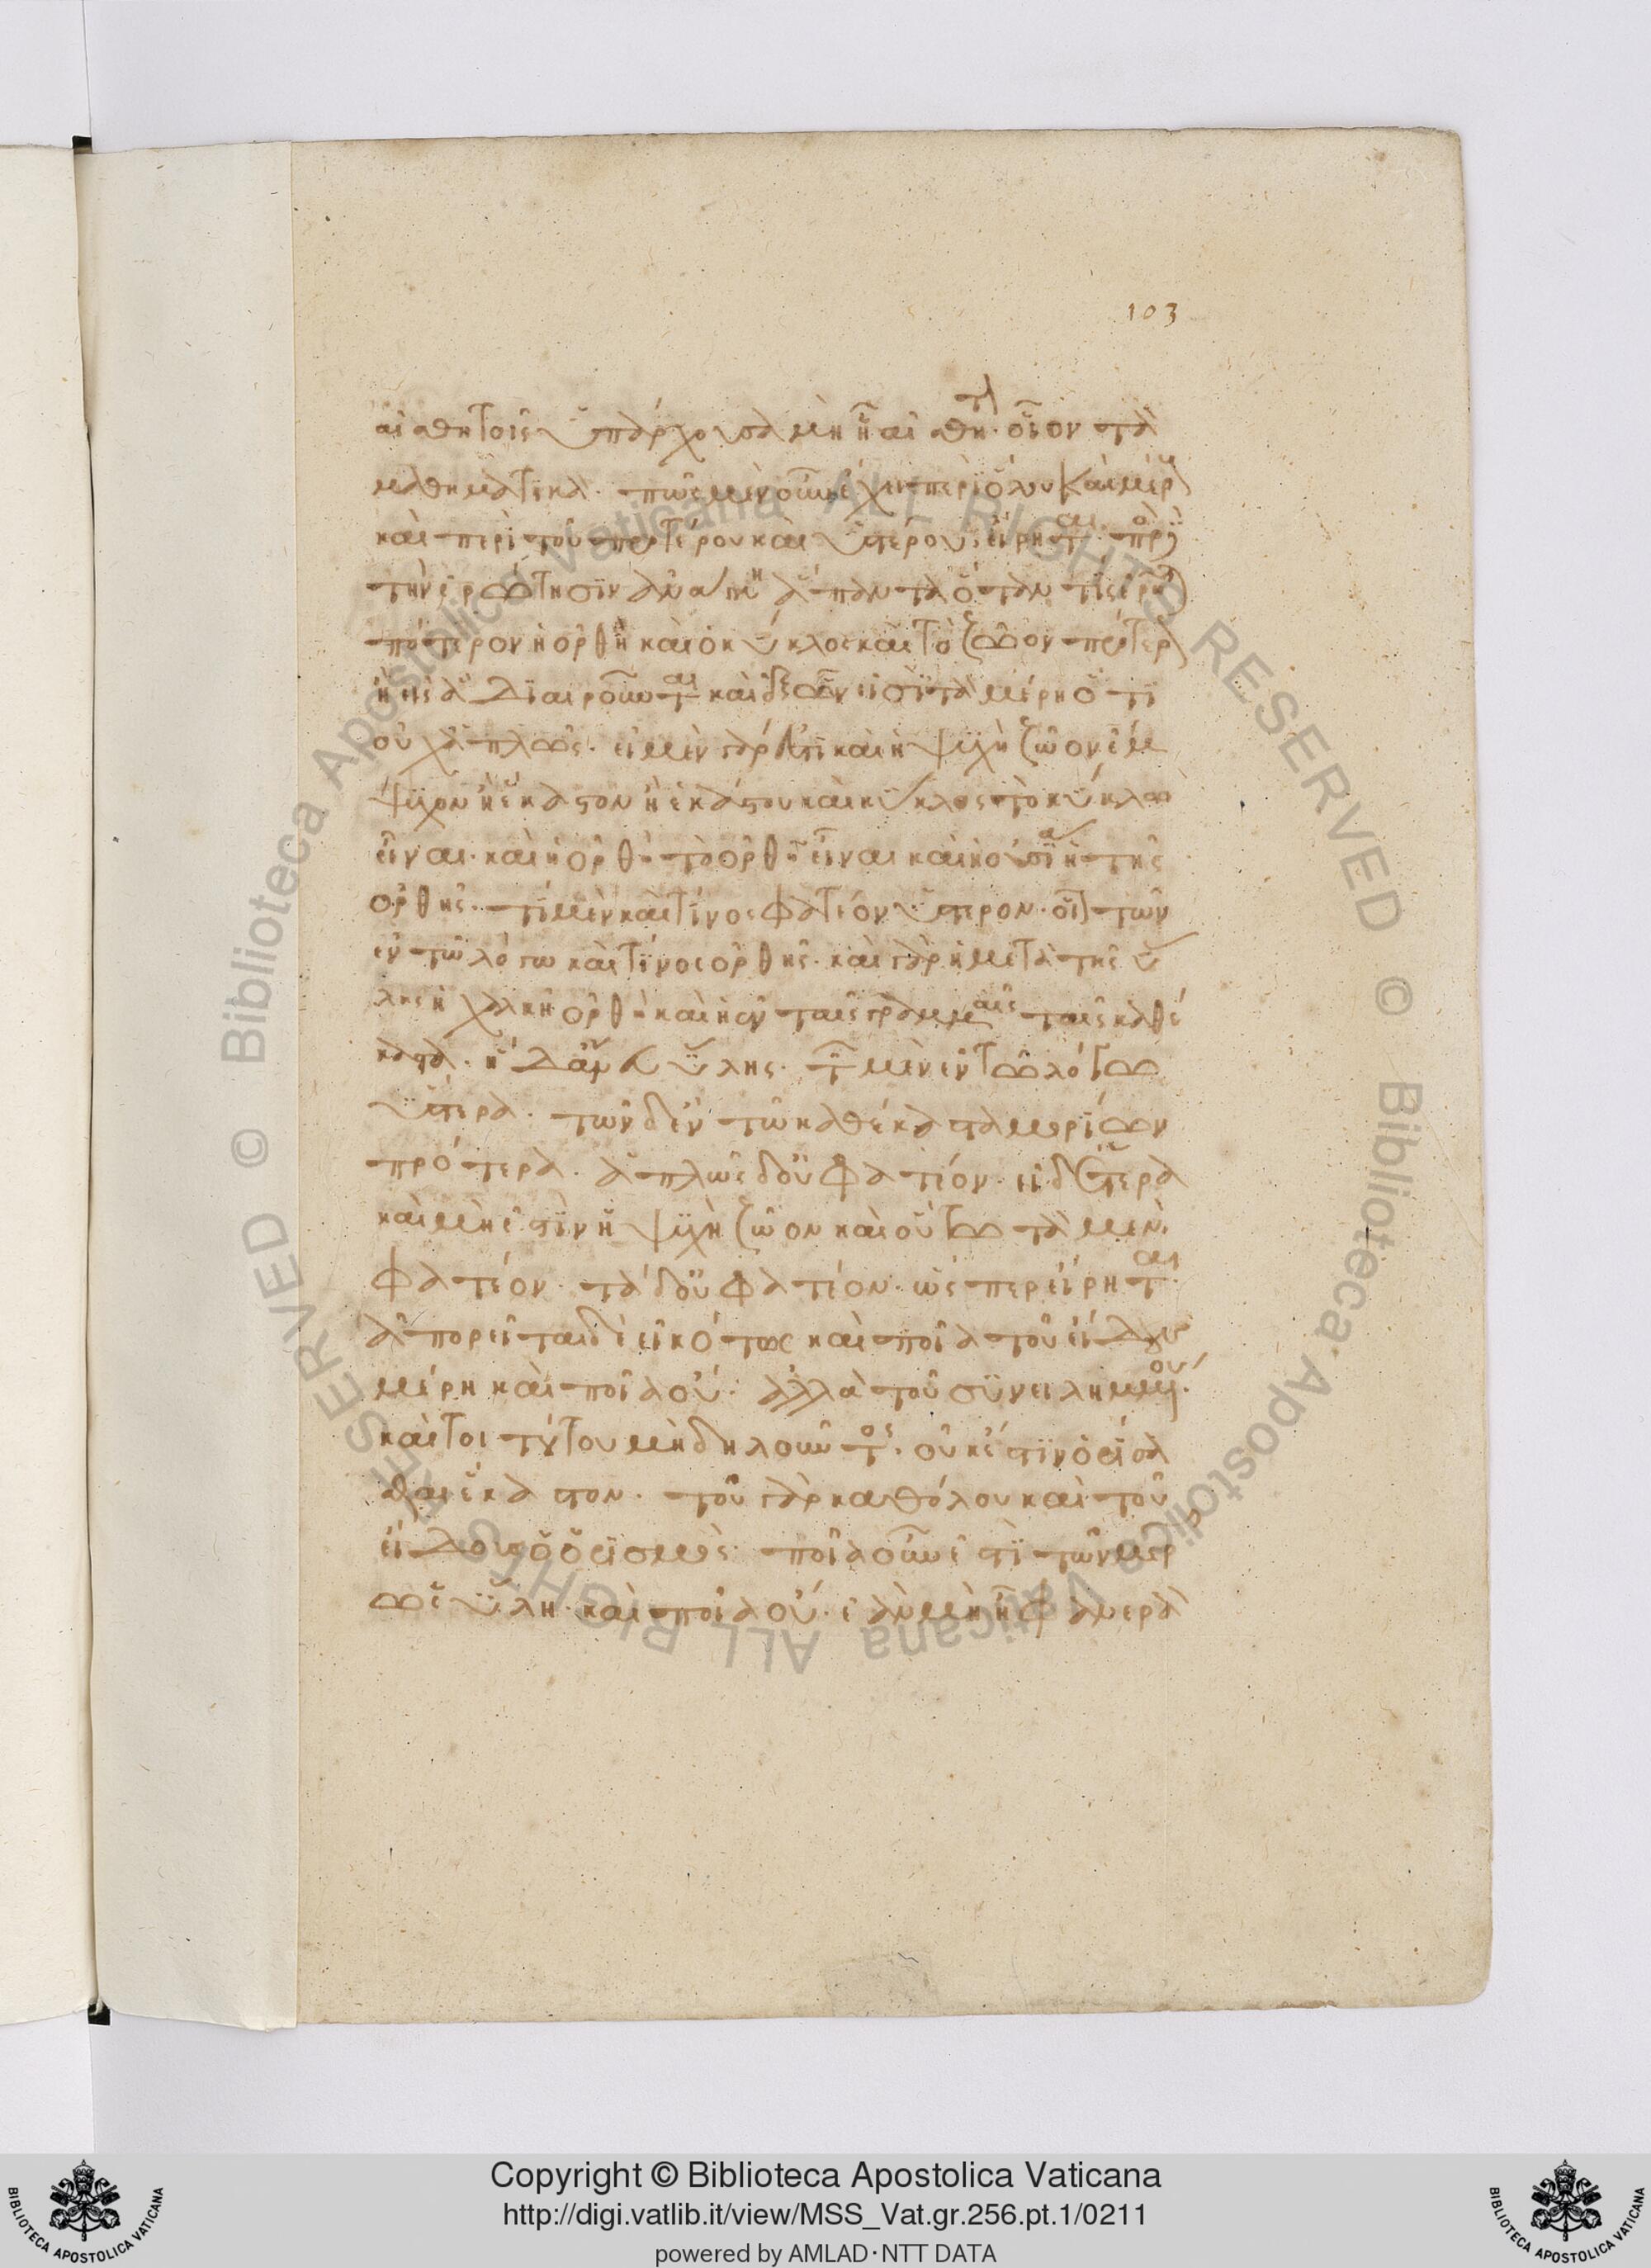 103
αἰσθητοῖς ὑπάρχουσα μὴ ᾗ αἰσθητά· οἷον τὰ
μαθηματικά. πῶς μὲν οὖν ἔχει περὶ ὅλου καὶ μέρους
καὶ περὶ τοῦ προτέρου καὶ ὑστέρου, εἴρηται. πρὸς
τὴν ἐρώτησιν ἀνάγκη ἀπαντᾶν ὅταν τις ἔρηται
πότερον ἡ ὀρθὴ καὶ ὁ κύκλος καὶ τὸ ζῶον πρότερον
ἢ εἰς ἃ διαιροῦνται καὶ ἐξ ὧν εἰσὶ τὰ μέρη ὅτι
οὐχ ἁπλῶς. εἰ μὲν γάρ ἐστι καὶ ἡ ψυχὴ ζῶον ἔμ
ψυχον ἢ ἕκαστον ἡ ἑκάστου καὶ κύκλος τὸ κύκλω
εἶναι. καὶ ἡ ὀρθὴ τὸ ὀρθῆ εἶναι καὶ ἡ οὐσία ἡ τῆς
ὀρθῆς. τί μὲν καὶ τίνος φατέον ὕστερον. οἷον τῶν
ἐν τῶ λόγω καὶ τινος ὀρθῆς. καὶ γὰρ ἡ μετὰ τῆς ὕ
λης ἡ χαλκῆ ὀρθὴ καὶ ἡ ἐν ταῖς γραμμαῖς ταῖς καθέ
καστα. ἡ δ' ἄνευ ὕλης. τῶν μὲν ἐν τῶ λόγω
ὑστέρα. τῶν δ' ἐν τῶ καθέκαστα μορίων
πρότερα. ἁπλῶς δ' οὐ φατέον. εἰ δ' ἑτέρα
καὶ μὴ ἔστιν ἡ ψυχὴ ζῶον καὶ οὕτω τὰ μὲν
φατέον. τὰ δ' οὐ φατέον. ὥσπερ εἴρηται.
ἀπορεῖται δὲ εἰκότως καὶ ποῖα τοῦ εἴδους
μέρη καὶ ποῖα οὔ. ἀλλὰ τοῦ συνειλημμένου.
καίτοι τούτου μὴ δήλου ὄντος. οὐκ ἔστιν ὁρίσα
σθαι ἕκαστον. τοῦ γὰρ καθόλου καὶ τοῦ
εἴδους ὁ ὁρισμός. ποῖα οὖν ἐστὶ τῶν μερῶν
ὡς ὕλη. καὶ ποῖα οὔ. ἐὰν μὴ ᾖ φανερὰ
Copyright © Biblioteca Apostolica Vaticana
http://digi.vatlib.it/view/MSS_Vat.gr.256.pt.1/0211
powered by AMLAD·NTT DATA